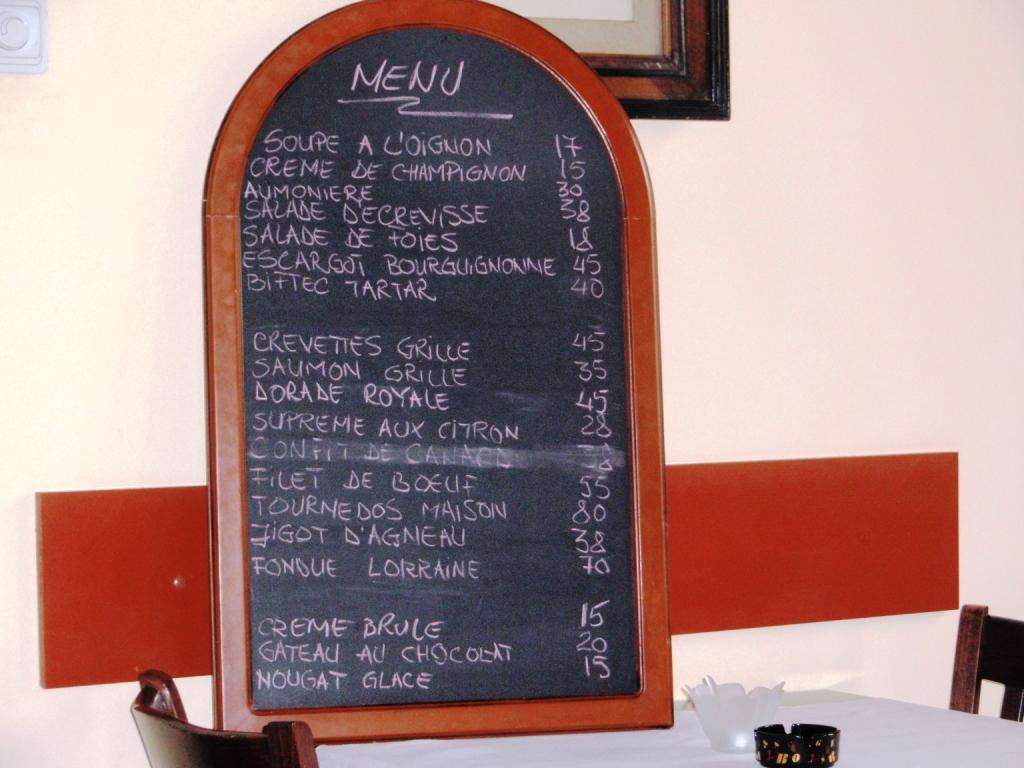 MENU
SOUPE A L'OIGNON 17
CREME DE CHAMPIGNON 15
AUMONIERE 30
SALADE DECREVISSE 38
SALADE DE FOIES 18
ESCARGOT BOURGUIGNONNE 45
BIFTEC TARTAR 40
CREVETTES GRILLE 45
SAUMON GRILLE 35
DORADE ROYALE 45
SUPREME AUX CITRON 28
CONFIT DE CANARD
FILET DE BOEUF 55
TOURNEDOS MAISON 80
JIGOT D'AGNEAU 38
FONDUE LORRAINE 70
CREME BRULE 15
GATEAU AU CHOCOLAT 20
NOUGAT GLACE 15